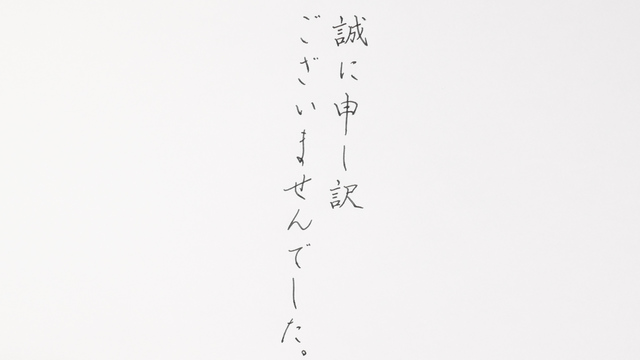 誠に申し訳
ございませんでした。